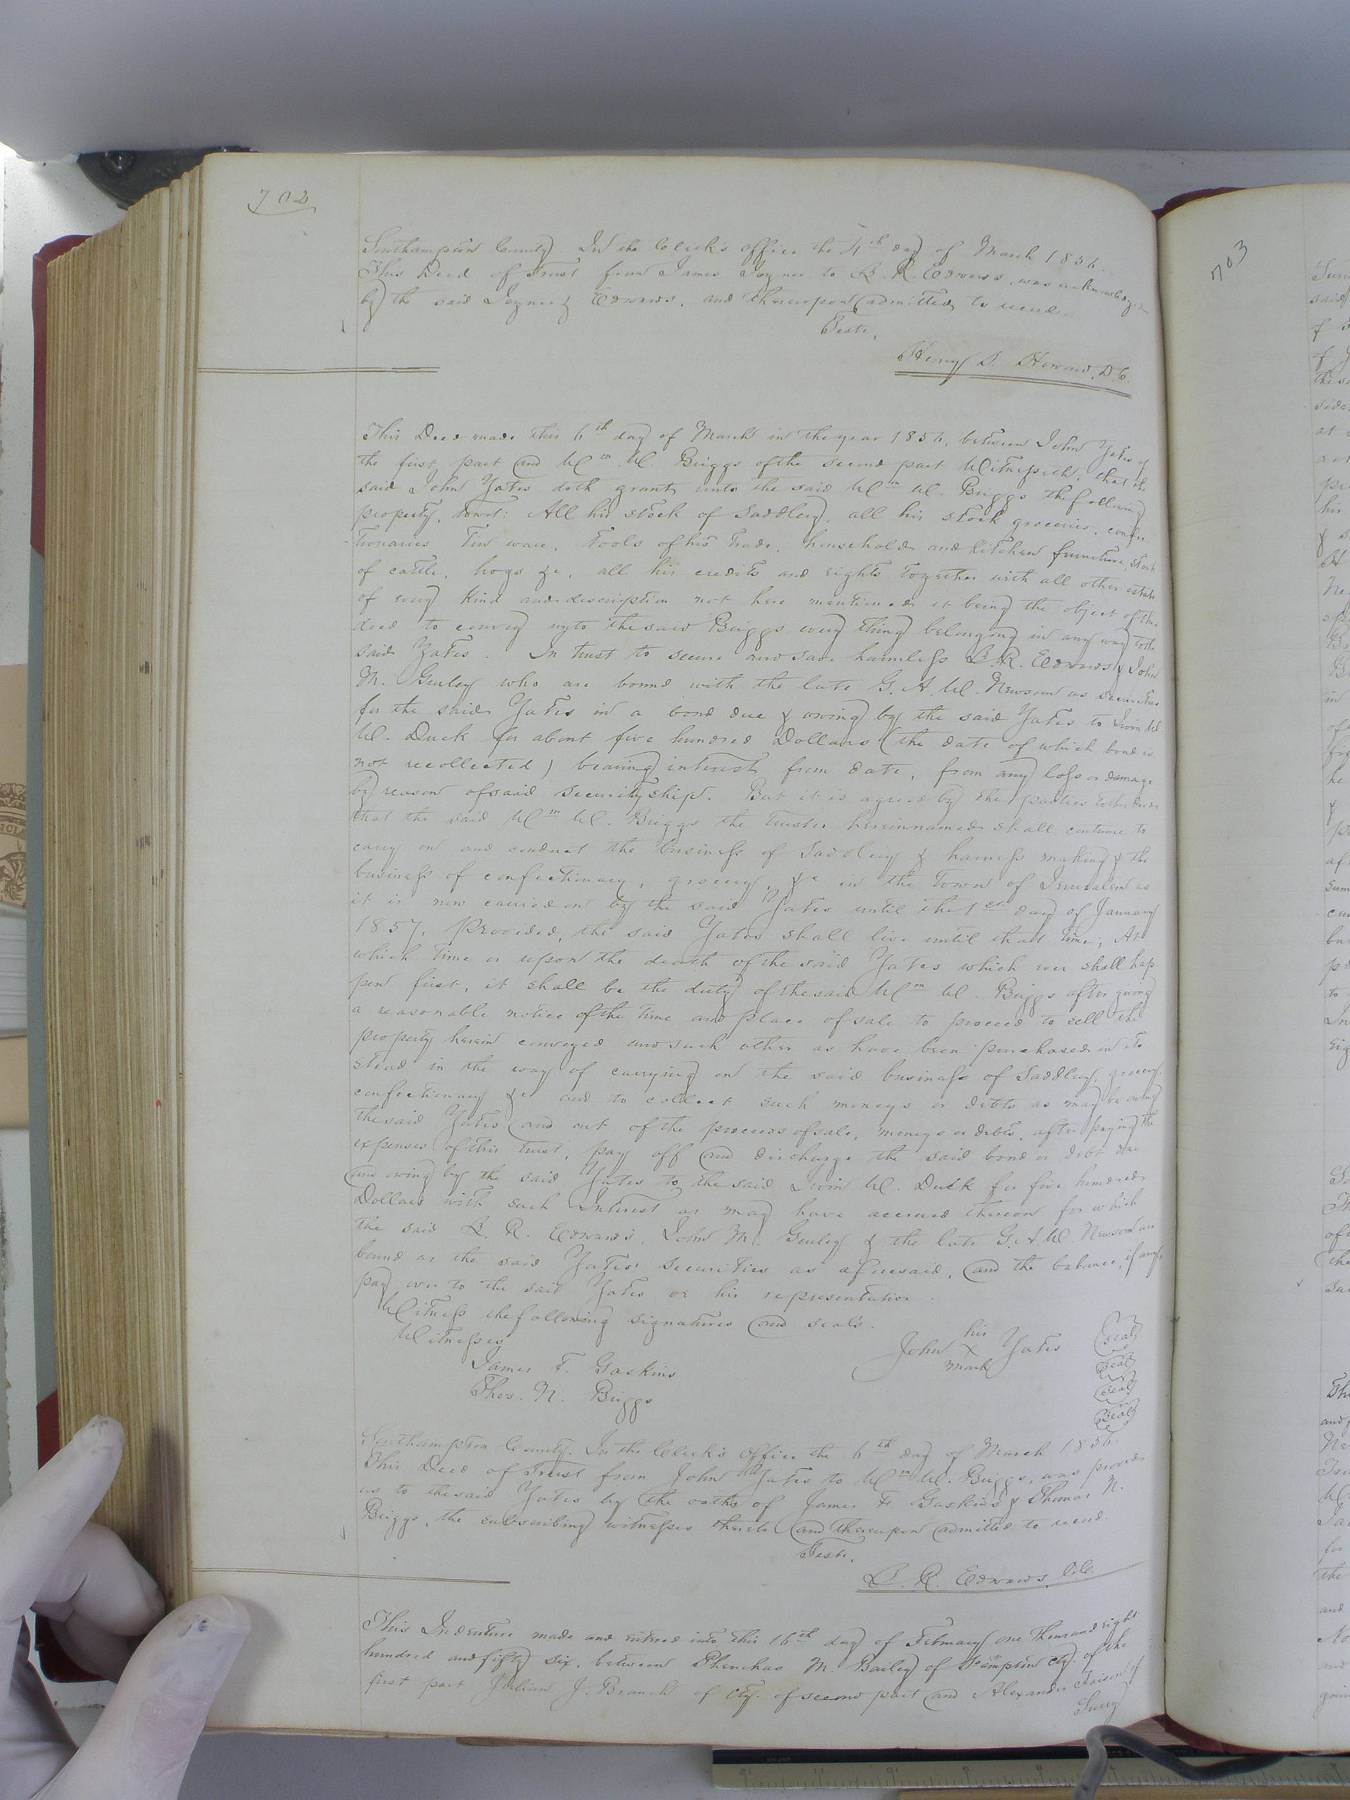 702
Southampton County. In the Clerk's office the 4th day of March 1856.
This Deed of Trust from James Joyner to L. R. Edwards, was acknowledged
by the said Joyner & Edwards, and thereupon admitted to record.
Teste,
Henry S. Howard, D.C.
This Deed made this 6th day of March in the year 1856, between John Yates of
the first part and Wm W. Briggs of the second part Witnesseth, that the
said John Yates doth grant unto the said Wm W. Briggs the following
property, towit: All his stock of Saddlery, all his stock groceries, confec
tionaries Tin ware, tools of his trade, household and kitchen furniture, stock
of cattle, hogs &c, all his credits and rights together with all other estate
of every kind and description not here mentioned it being the object of this
deed to convey unto the said Briggs every thing belonging in any way to the
said Yates. In trust to secure and save harmless L. R. Edwards & John
M. Gurley who are bound with the late G. A. W. Newsom as securities
for the said Yates in a bond due & owing by the said Yates to
W. Duck for about five hundred Dollars (the date of which bond is
not recollected) bearing interest from date, from any loss or damage
by reason of said securityship. But it is agreed by the parties
that the said Wm W. Briggs the trustee herein named shall continue to
carry on and conduct the business of Saddlery & harness making & the
business of confectionary, grocery, &c in the Town of Jerusalem as
it is now carried on by the said Yates until the 1st day of January
1857, Provided, the said Yates shall live until that time, At
which time or upon the death of the said Yates which ever shall hap
pen first, it shall be the duty of the said Wm W. Briggs after giving
a reasonable notice of the time and place of sale to proceed to sell the
property herein conveyed and such other as have been purchased in its
stead in the way of carrying on the said business of Saddlery, grocery
confectionary &c and to collect such moneys or debts as may be owing
the said Yates and out of the proceeds of sale, moneys or debts, after paying the
expenses of this trust, pay off and discharge the said bond or debt due
and owing by the said Yates to the said W. Duck for five hundred
Dollars with such Interest as may have accrued thereon for which
the said L. R. Edwards, John M. Gurley & the late G. A. W Newsom are
bound as the said Yates' securities as aforesaid, and the balance, if any,
pay over to the said Yates or his representation.
Witness the following signatures and seals.
Witnesses
James F. Gaskins
Thos. N. Briggs
his
John X Yates
mark
Seal
Seal
Seal
Seal
Southampton County. In the Clerk's Office the 6th day of March 1856.
This Deed of Trust from John Yates to Wm W. Briggs, was proved
as to the said Yates by the oaths of James F. Gaskins & Thomas N.
Briggs, the subscribing witnesses thereto and thereupon admitted to record.
Teste.
L. R. Edwards, C.C.
This Indenture made and entered into this 16th day of February one Thousand eight
hundred and fifty six, between Phenehas M. Bailey of S'hampton Cty. of the
first part Julian J. Branch of Cty. of second part and Alexander Faison of
Surry
703